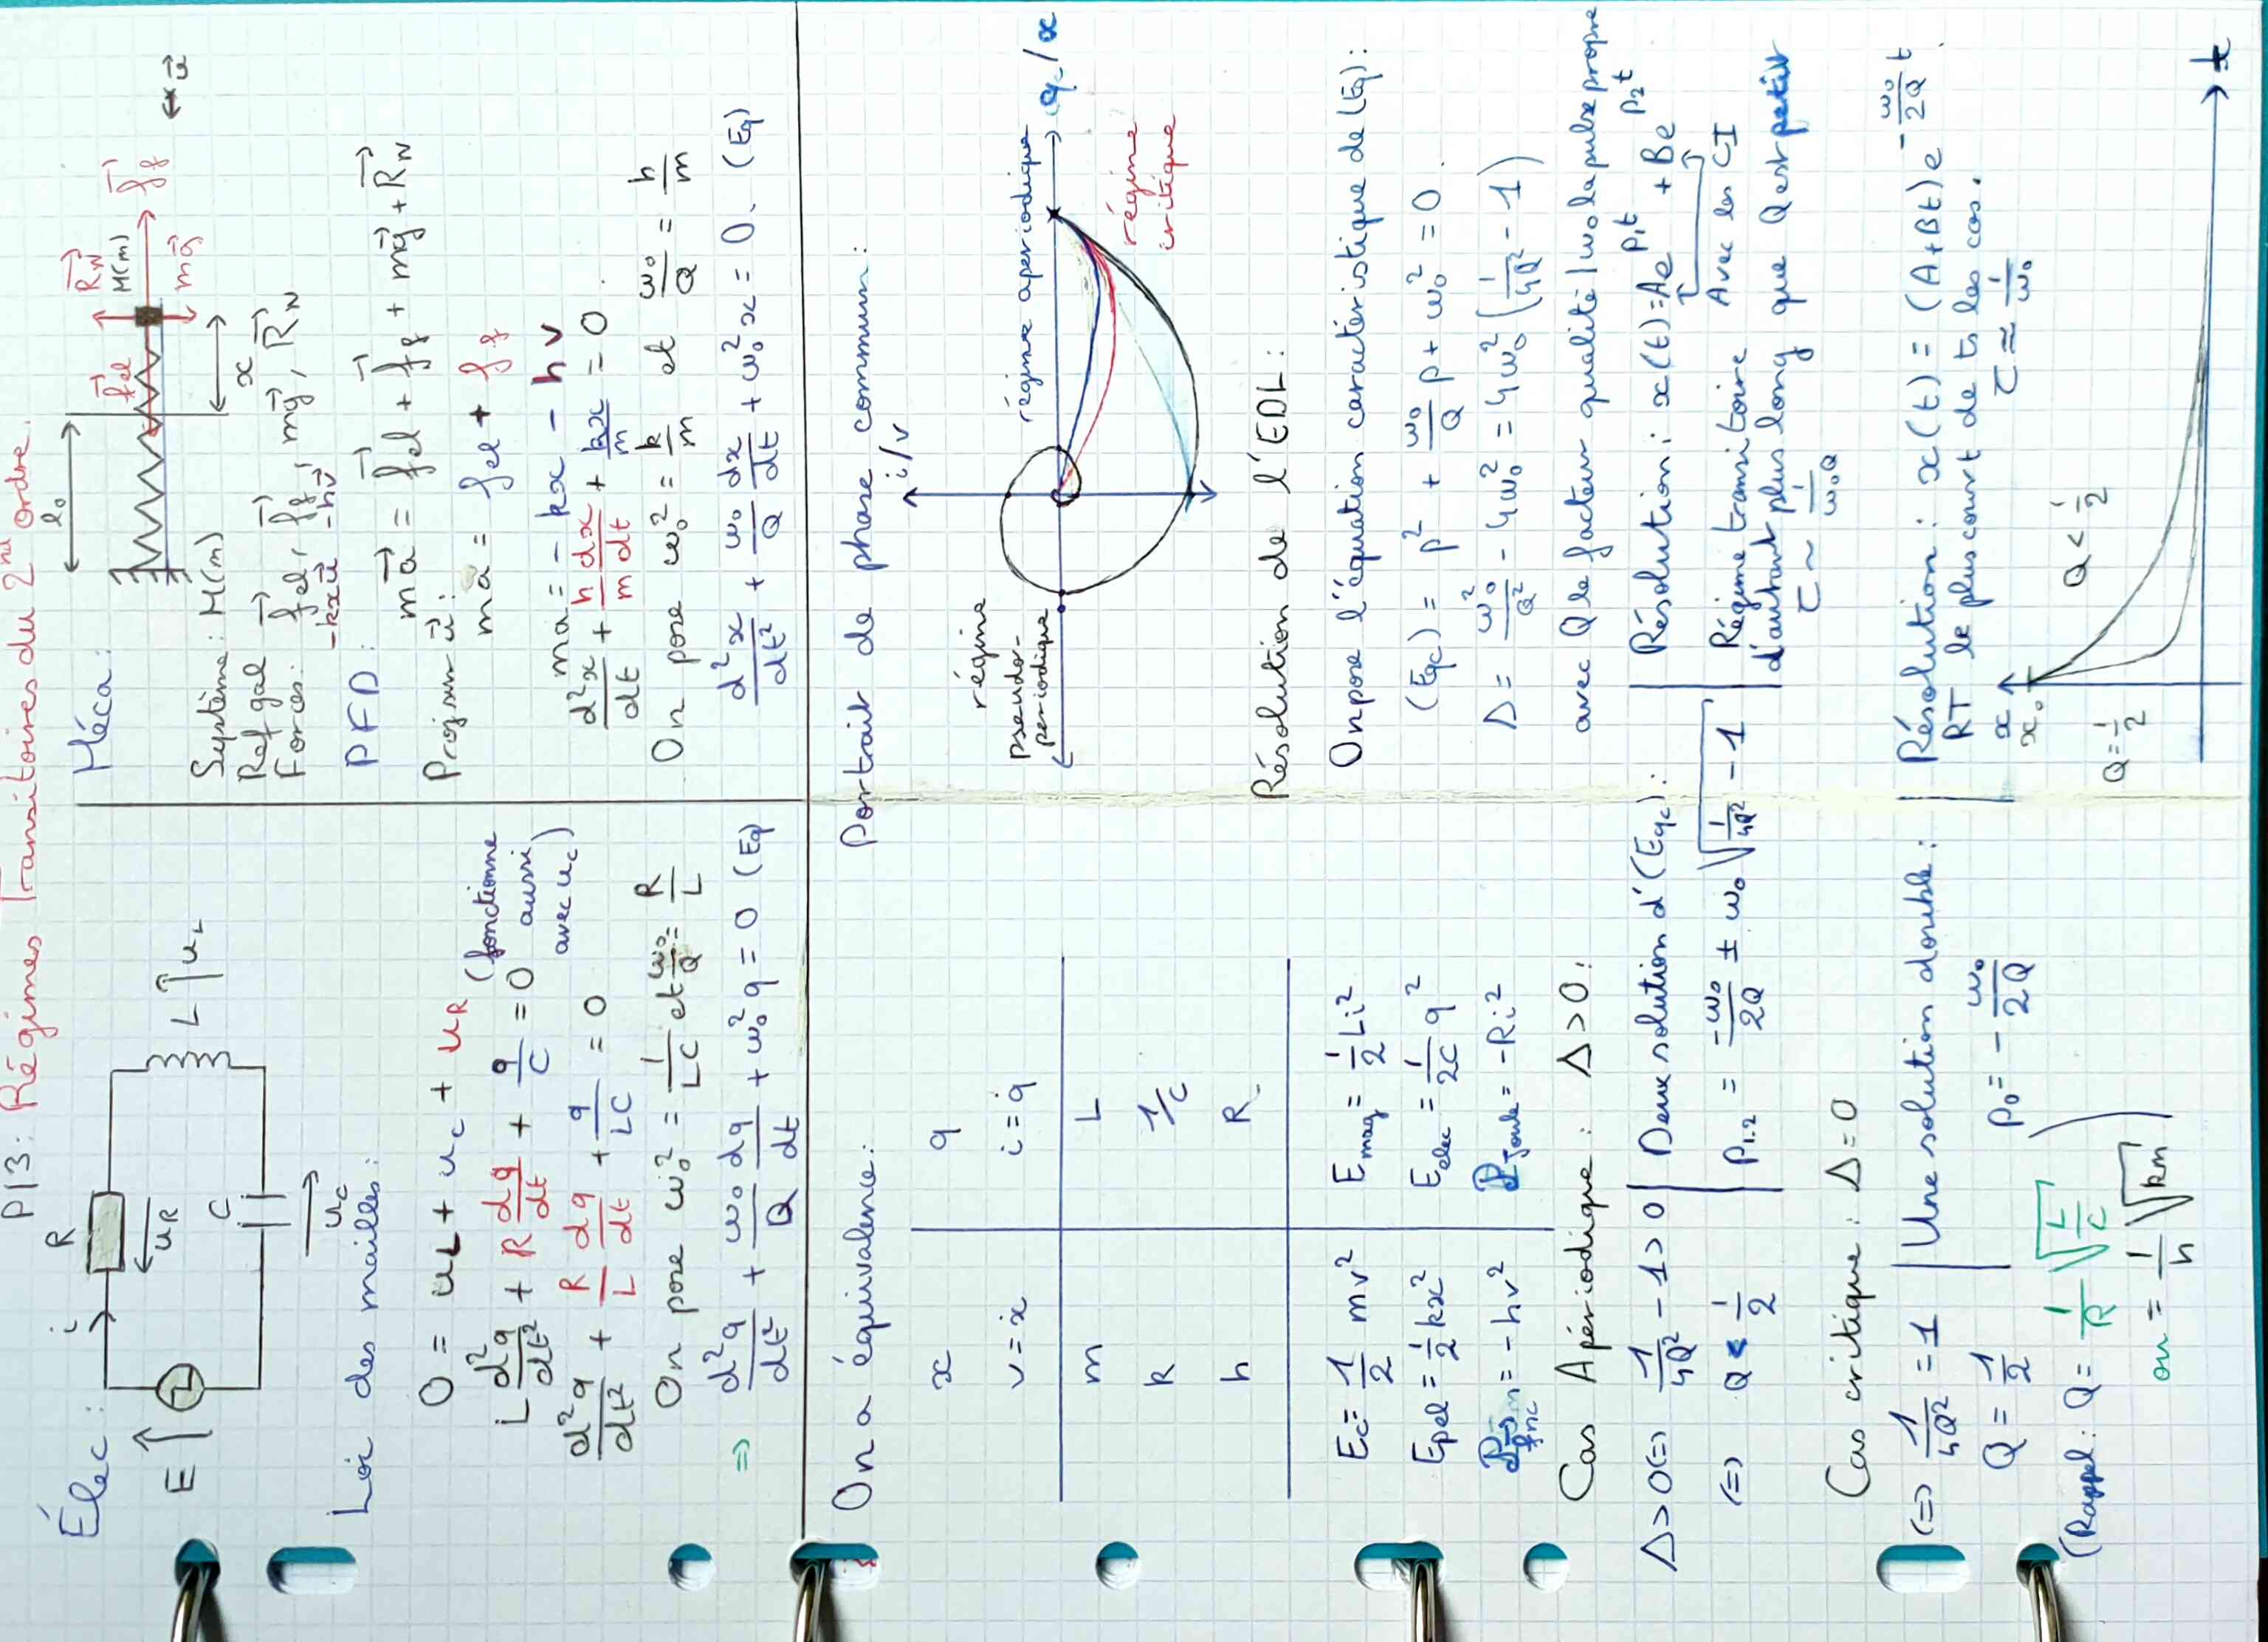 P13: Régimes Transitoires du 2nd ordre.
Élec:
R
i
E
uR
L uL
C
uc
Loi des mailles:
0 = uL + uc + uR
L d²q/dt² + R dq/dt + q/C = 0 (fonctionne aussi avec uc)
d²q/dt² + R/L dq/dt + q/LC = 0
On pose ω0² = 1/LC et ω0/Q = R/L
=> d²q/dt² + ω0/Q dq/dt + ω0² q = 0 (Eq)
Méca:
l0
fel→ RN→ M(m) ff→
mg→
x
u→
Système: M(m)
Ref gal
Forces: fel→, ff→, mg→, RN→
-kxu→ -hv→
PFD:
ma→ = fel→ + ff→ + mg→ + RN→
Proj sur u→:
ma = fel + ff
ma = - kx - hv
d²x/dt + h/m dx/dt + kx/m = 0.
On pose ω0² = k/m et ω0/Q = h/m
d²x/dt² + ω0/Q dx/dt + ω0² x = 0. (Eq)
On a équivalence:
x q
v = ẋ i = q̇
m L
k 1/C
h R
Ec = 1/2 mv² Emag = 1/2 Li²
Epel = 1/2 kx² Eelec = 1/2C q²
= - hv² PJoule = -Ri²
Portrait de phase commun:
i/v
régime apériodique
q/x
régime pseudo-periodique
régime critique
Résolution de l'EDL:
On pose l'équation caractéristique de (Eq):
(Eqc) = p² + ω0/Q p + ω0² = 0.
Δ = ω0²/Q² - 4ω0² = 4ω0² (1/4Q² - 1)
avec Q le facteur qualité / ω0 la pulse propre
Cas Apériodique: Δ>0:
Δ>0 (=) 1/4Q² - 1 > 0
(=) Q < 1/2
Deux solution d'(Eqc):
P1,2 = -ω0/2Q ± ω0 √(1/4Q² - 1)
Résolution: x(t) = Ae^p1t + Be^p2t
Avec les CI
Régime transitoire d'autant plus long que Q est petit
τ ~ 1/ω0Q
Cas critique: Δ=0
(=) 1/4Q² = 1
Q = 1/2
Une solution double:
p0 = - ω0/2Q
(Rappel: Q = 1/R √(L/C)
ou = 1/h √km )
Résolution: x(t) = (A+Bt)e^-ω0/2Q t.
RT le plus court de ts les cas.
τ ≃ 1/ω0
x
x0
Q = 1/2
Q < 1/2
t